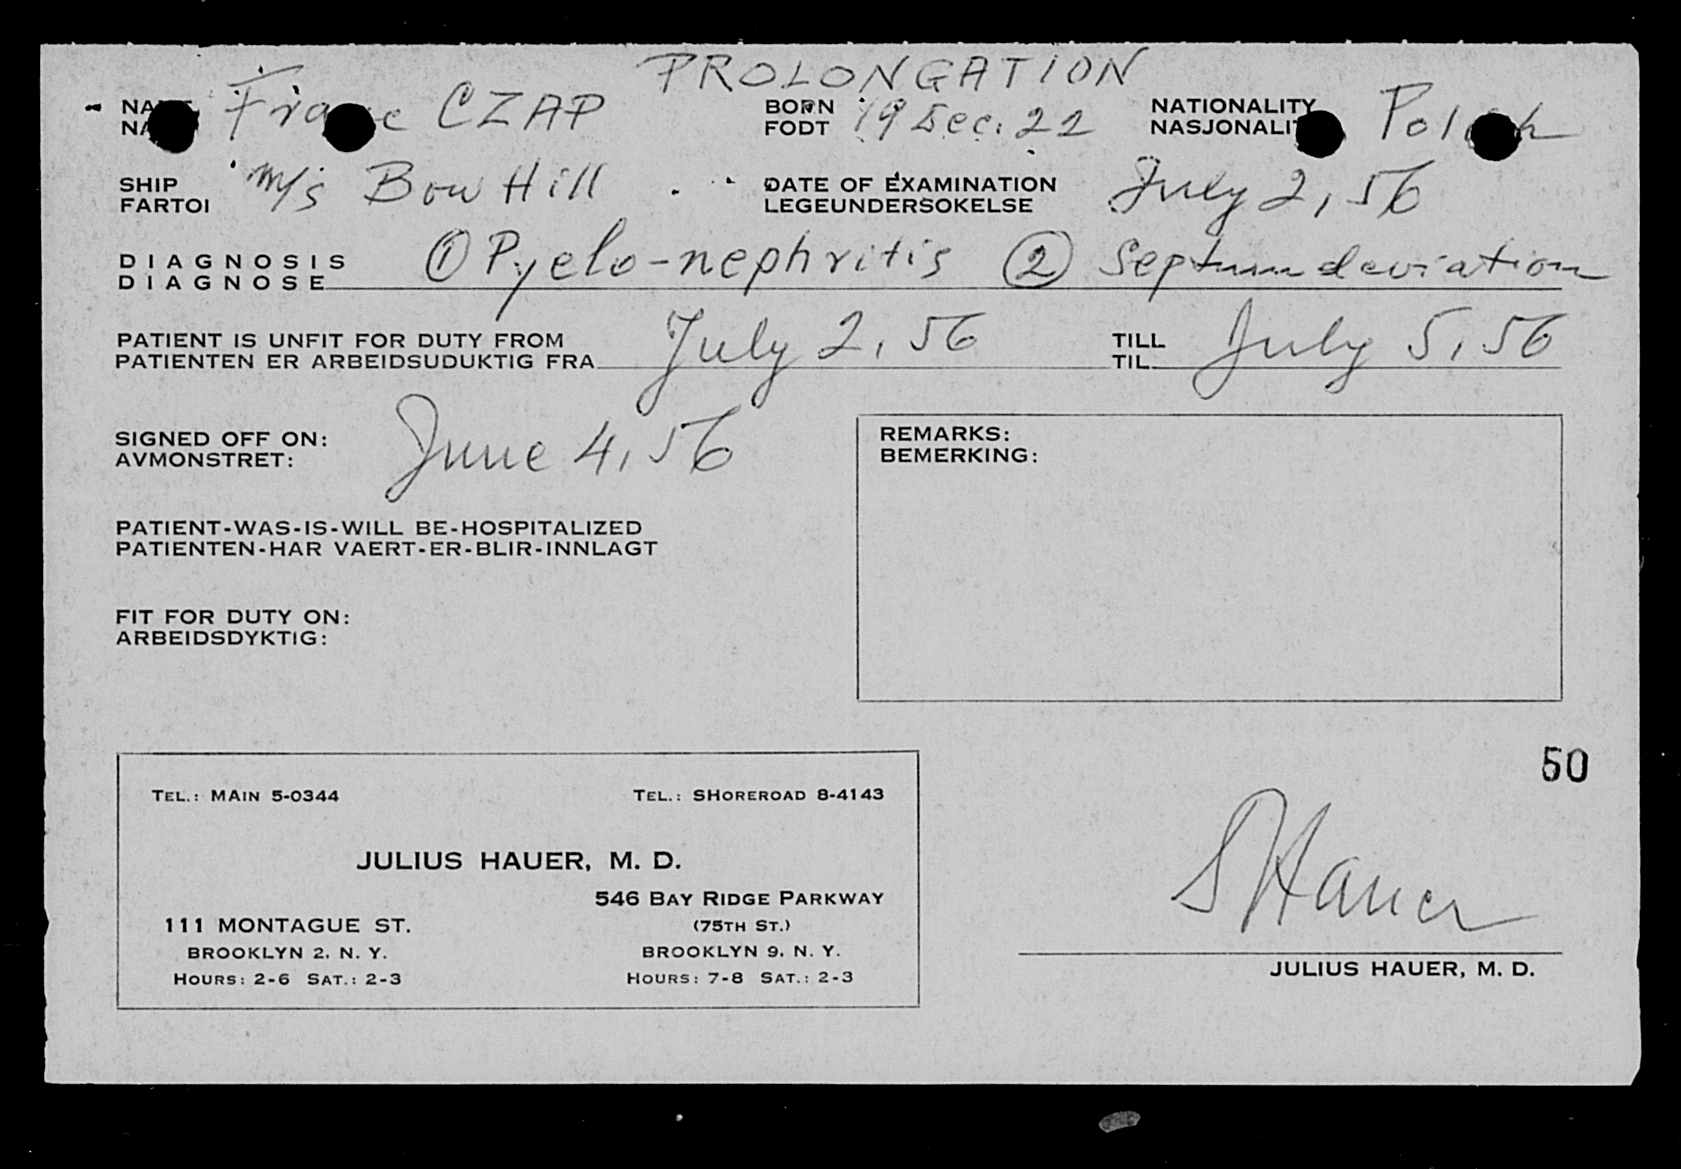 PROLONGATION
CZAP BORN 19 Dec. 22 NATIONALITY
FODT
SHIP M/S Bow Hill DATE OF EXAMINATION July 2, 56
FARTOI LEGEUNDERSOKELSE
DIAGNOSIS ① Pyelo-nephritis ② Septum deviation
DIAGNOSE
PATIENT IS UNFIT FOR DUTY FROM July 2, 56 TILL July 5, 56
PATIENTEN ER ARBEIDSUDUKTIG FRA TIL
SIGNED OFF ON: June 4, 56 REMARKS:
AVMONSTRET: BEMERKING:
PATIENT-WAS-IS-WILL BE-HOSPITALIZED
PATIENTEN-HAR VAERT-ER-BLIR-INNLAGT
FIT FOR DUTY ON:
ARBEIDSDYKTIG:
50
TEL.: MAIN 5-0344 TEL.: SHOREROAD 8-4143
JULIUS HAUER, M. D.
546 BAY RIDGE PARKWAY
111 MONTAGUE ST. (75TH ST.)
BROOKLYN 2, N. Y. BROOKLYN 9, N. Y.
HOURS: 2-6 SAT.: 2-3 HOURS: 7-8 SAT.: 2-3
Hauer
JULIUS HAUER, M. D.